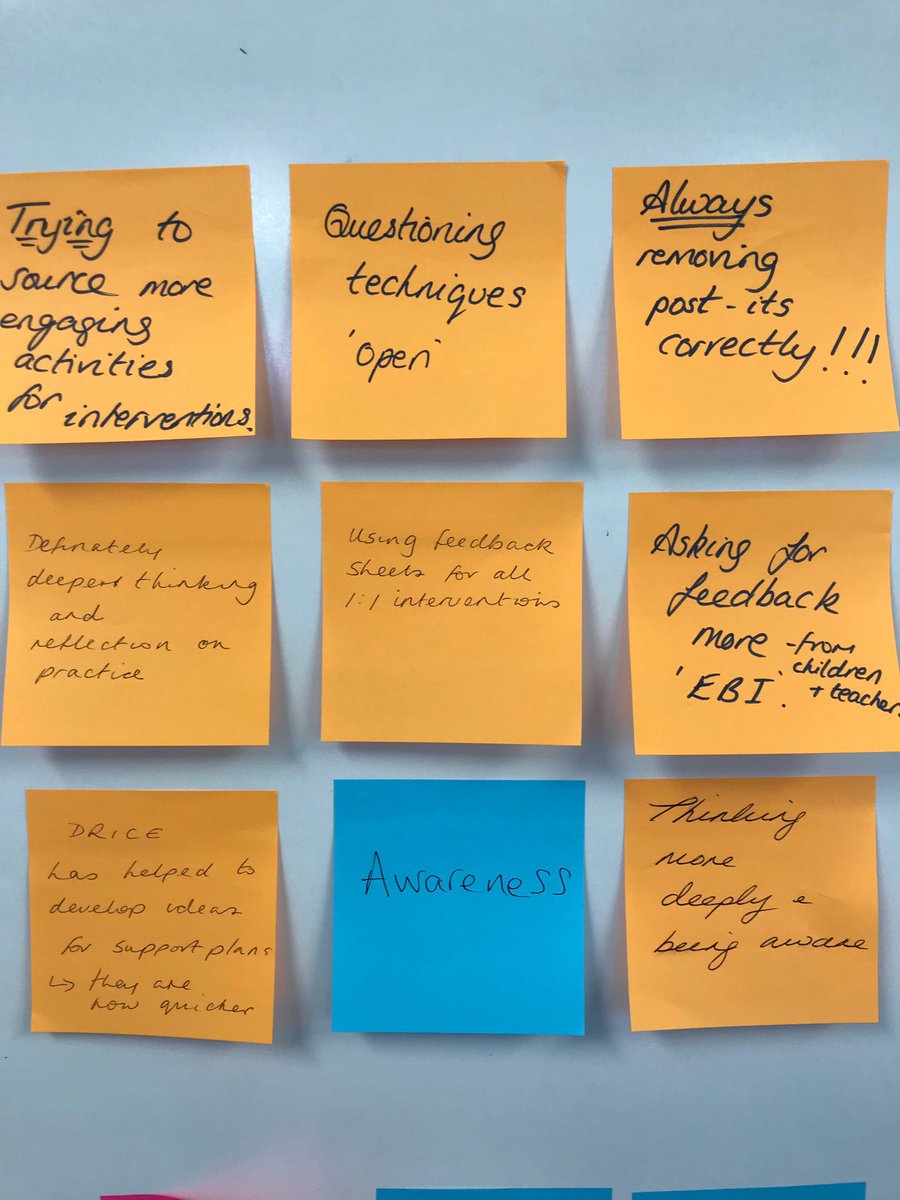 Trying to
source more
engaging
activities
for interventions.
Questioning
techniques
'open'
Always
removing
post-its
correctly!!!
Definately
deeper thinking
and
reflection on
practice
Using feedback
sheets for all
1:1 interventions
Asking for
feedback
more - from
children
'EBI'. + teachers
DRICE
has helped to
develop ideas
for support plans
↳ they are
now quicker
Awareness
Thinking
more
deeply &
being aware